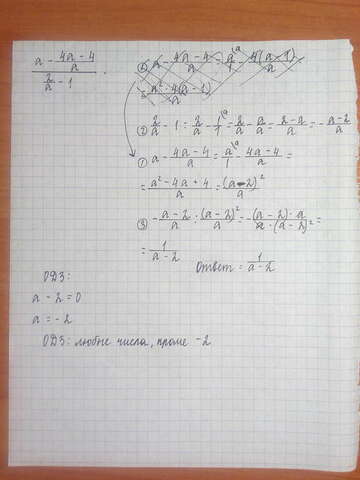 (a - (4a - 4)/a) / (2/a - 1) .
② 2/a - 1 = 2/a - 1/1^(\a) = 2/a - a/a = (2 - a)/a = -(a - 2)/a
① a - (4a - 4)/a = a^(\a)/1 - (4a - 4)/a =
= (a² - 4a + 4)/a = (a - 2)²/a
③ -(a - 2)/a · (a - 2)²/a = -((a - 2) · a)/(a · (a - 2)²) =
= 1/(a - 2)
Ответ = 1/(a - 2)
ОДЗ:
a - 2 = 0
a = -2
ОДЗ: любые числа, кроме -2